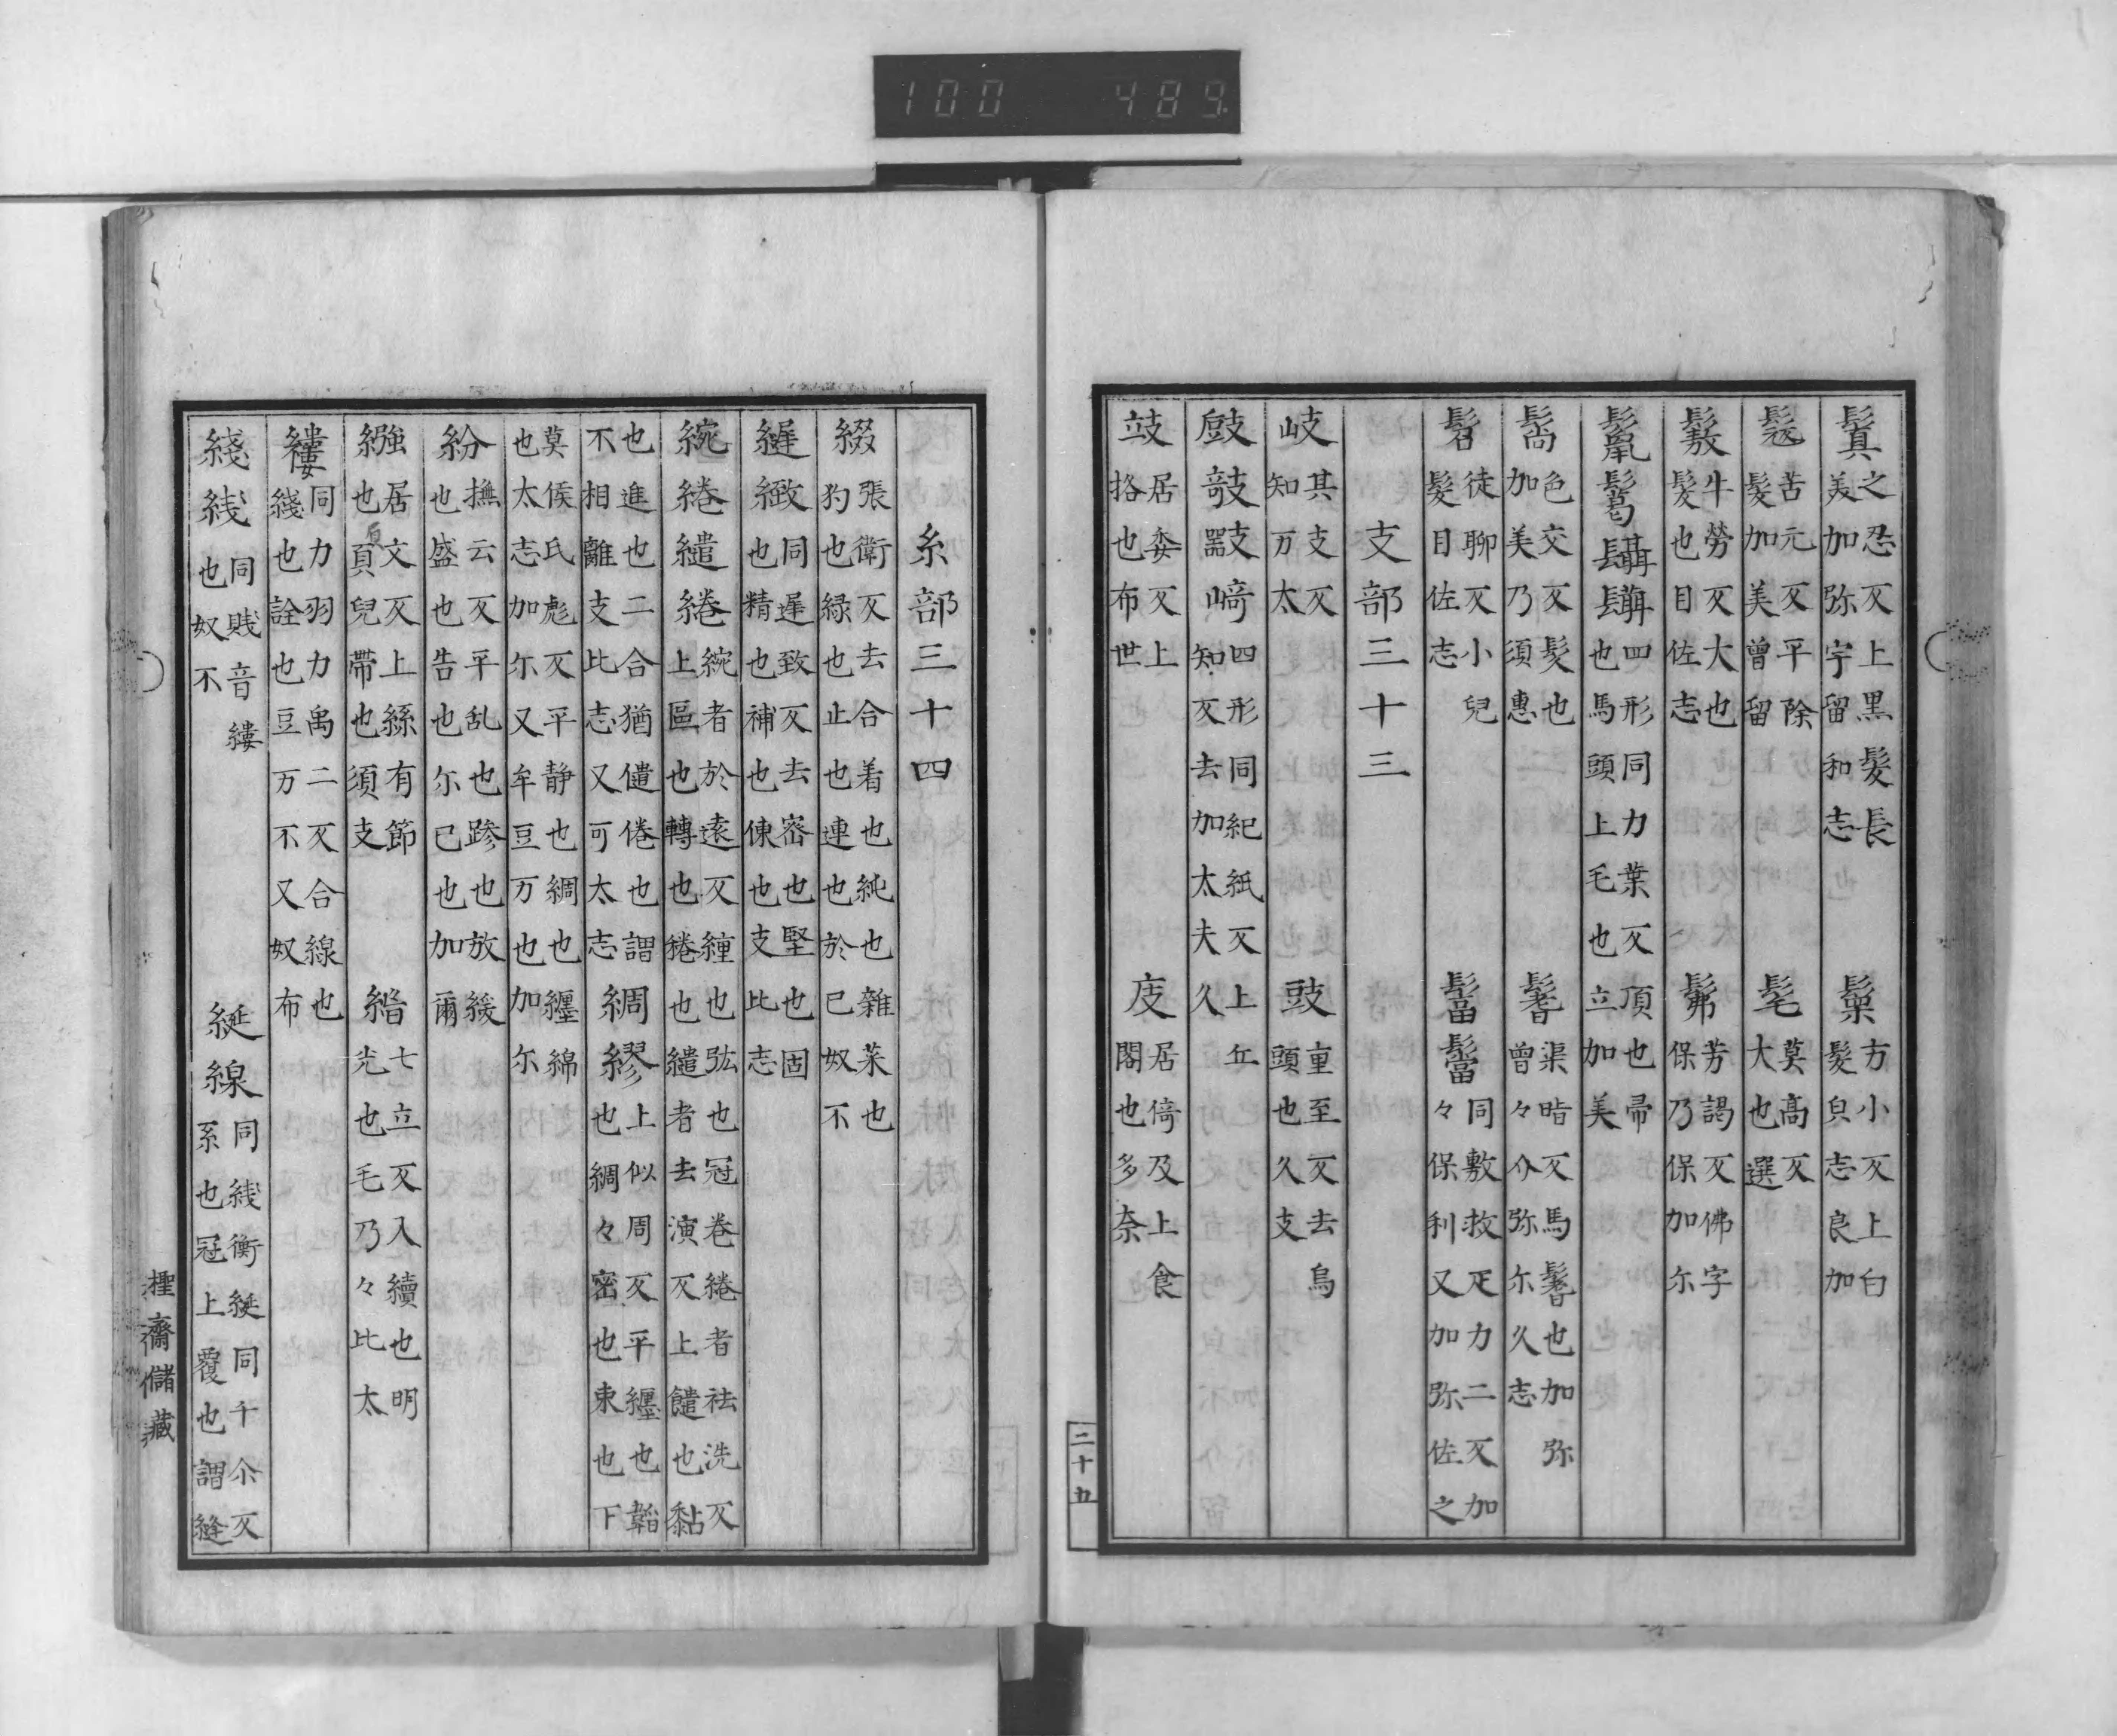 100 489.
鬒 之忍反上黒髪長美加弥宇留和志 髤 方小反上白髮皃志良加
髡 苦元反平除髮加美曽留 髦 莫髙反大也選
牛勞反大也髮也目佐志 髴 芳謁反佛字保乃保加尓
鬛 四形同力葉反頂也帚也馬頭上毛也立加美
髾 色交反髮也加美乃須惠 鬐 渠㫮反馬鬐也加弥曽々介弥尓久志
髫 徒聊反小兒髮目佐志 同敷救反力二反加々保利又加弥佐之
支部三十三
岐 其支反知万太 豉 重至反去烏頭也久支
攲 敧 㩻 崎 四形同紀紙反上丘知反去加太夫久
攱 居委反上挌也布世 庋 居倚反上食閣也多奈
二十五
糸部三十四
綴 張衛反去合着也純也雜菜也豹也緑也止也連也於己奴不
緻 同遅致反去密也堅也固也精也補也倲也支比志
綩 綣 繾 綣 綩者於遠反纏也弦也冠卷綣者祛洗反上區也轉也綣也繾者去演反上饐也黏
也進也二合猶儘倦也謂不相離支比志又可太志 綢 繆 上似周反平纏也韜也綢々密也束也下
莫侯氏彪反平静也綢也纒綿也太志加尓又牟豆万也加尓
紛 撫云反平乱也跡也放緩也盛也告也尓己也加爾
繦 居文反上絲有節也頁兒帶也須支 緝 七立反入續也明光也毛乃々比太
縷 同力羽力禹二反合線也綫也詮也豆万不又奴布
綫 线 同賎音縷也奴不 綖 線 同线衡綖同千尒反糸也冠上覆也謂縫
㮚齋儲藏